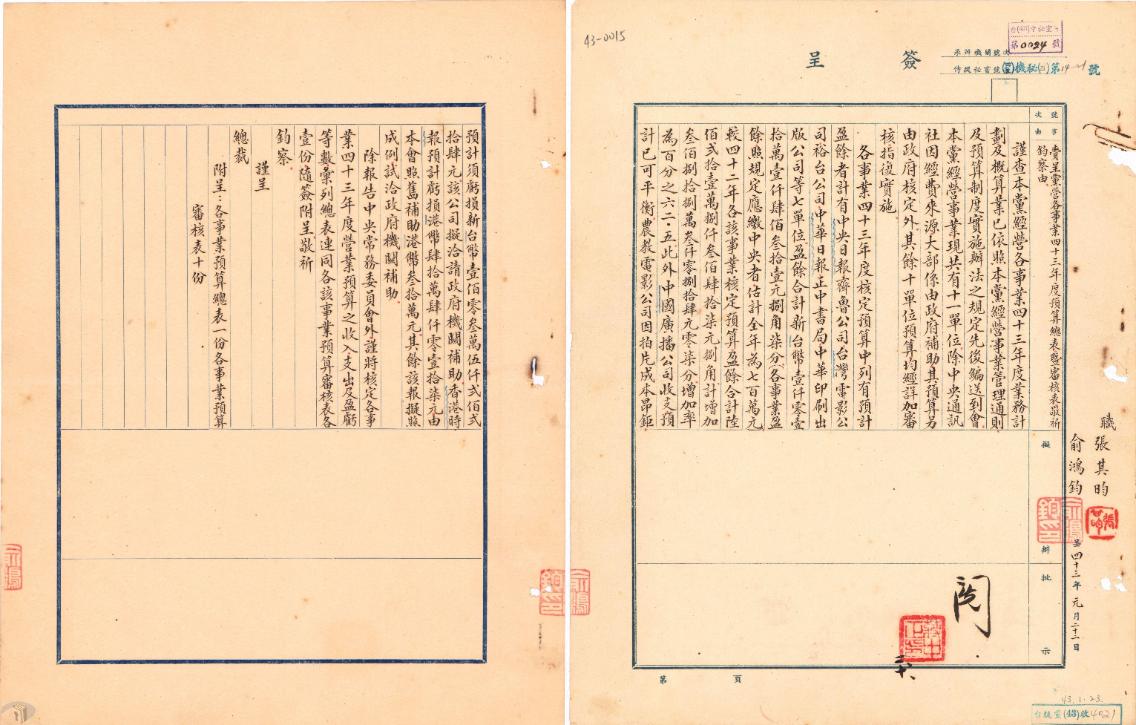 43-0015
簽呈
第0024號
承辦機關號次
侍從秘書號次
機秘(二)第
號
號次
事由
費呈黨營各事業四十三年度預算總表暨審核表敬祈
鈞察由
謹查本黨經營各事業四十三年度業務計
劃及概算業已依照本黨經營事業管理通則
及預算制度實施辦法之規定先後編送到會
本黨經營事業現共有十一單位除中央通訊
社因經費來源大部係由政府補助其預算另
由政府核定外其餘十單位預算均經詳加審
核指復實施
各事業四十三年度核定預算中列有預計
盈餘者計有中央日報齊魯公司台灣電影公
司裕台公司中華日報正中書局中華印刷出
版公司等七單位盈餘合計新台幣壹仟零壹
拾萬壹仟肆佰叁拾壹元捌角柒分各事業盈
餘照規定應繳中央者估計全年為七百萬元
較四十二年各該事業核定預算盈餘合計陸
佰弍拾壹萬捌仟叁佰肆拾柒元捌角計增加
叁佰捌拾捌萬叁仟零捌拾肆元零柒分增加率
為百分之六二·五此外中國廣播公司收支預
計已可平衡農教電影公司因拍片成本昂鉅
職張其昀
俞鴻鈞
呈四十三年元月二十二日
擬辦
批示
閱
第頁
43.1.23.
台機室(43)收4021
預計須虧損新台幣壹佰零叁萬伍仟弍佰弍
拾肆元該公司擬洽請政府機關補助香港時
報預計虧損港幣肆拾萬肆仟零壹拾柒元由
本會照舊補助港幣叁拾萬元其餘該報擬照
成例試洽政府機關補助
除報告中央常務委員會外謹將核定各事
業四十三年度營業預算之收入支出及盈虧
等數彙列總表連同各該事業預算審核表各
壹份隨簽附呈敬祈
鈞察
謹呈
總裁
附呈：各事業預算總表一份各事業預算
審核表十份